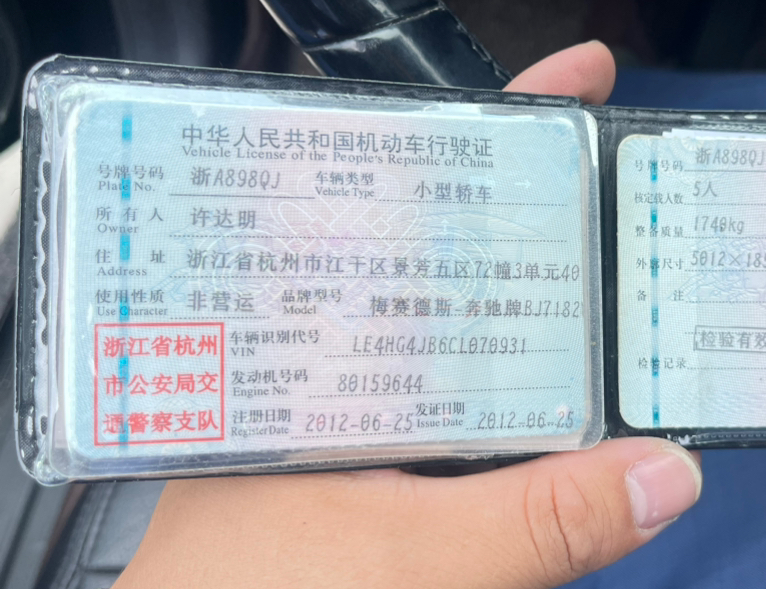 中华人民共和国机动车行驶证
Vehicle License of the People's Republic of China
号牌号码 浙A898QJ 车辆类型 小型轿车
Plate No. Vehicle Type
所有人 许达明
Owner
住址 浙江省杭州市江干区景芳五区72幢3单元40
Address
使用性质 非营运 品牌型号 梅赛德斯-奔驰牌BJ7182
Use Character Model
浙江省杭州
市公安局交
通警察支队
车辆识别代号 LE4HG4JB6CL070931
VIN
发动机号码 80159644
Engine No.
注册日期 2012-06-25 发证日期 2012-06-25
Register Date Issue Date
号牌号码 浙A898QJ
核定载人数 5人
整备质量 1740kg
外廓尺寸 5012×185
备注
检验有效
检验记录